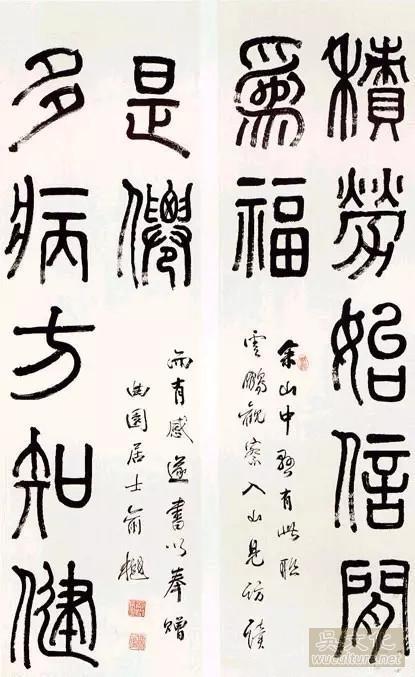 積勞始信閒
爲福
多病方知健
是僊
余山中懸有此聯
雲鵬觀察入山見訪讀
而有感遂書以奉贈
曲園居士俞樾
吳文化
www.wuculture.net